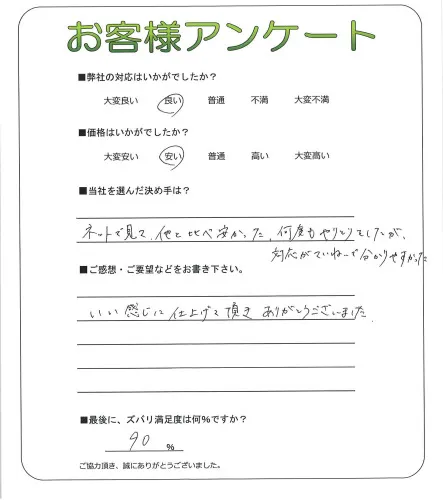 お客様アンケート
■弊社の対応はいかがでしたか?
大変良い 良い 普通 不満 大変不満
■価格はいかがでしたか?
大変安い 安い 普通 高い 大変高い
■当社を選んだ決め手は?
ネットで見て、他と比べ安かった、何度もやりとりをしたが、
対応がていねーで分かりやすかった
■ご感想・ご要望などをお書き下さい。
いい感じに仕上げて頂きありがとうございました。
■最後に、ズバリ満足度は何%ですか?
90 %
ご協力頂き、誠にありがとうございました。